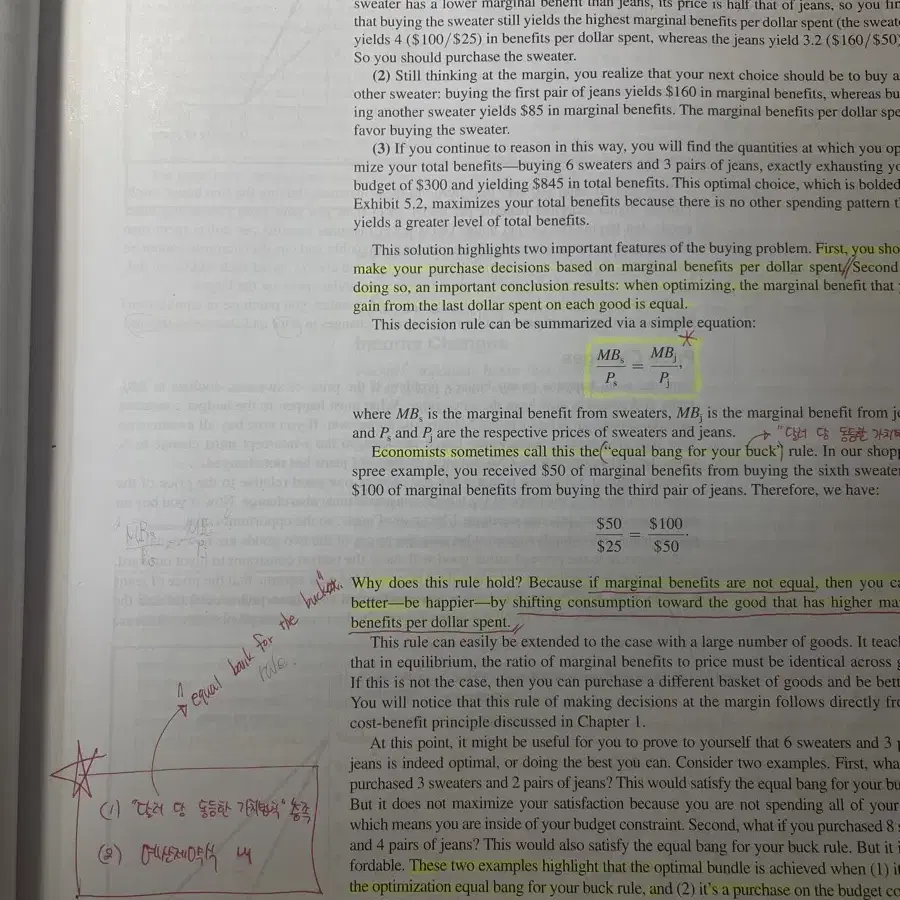 sweater has a lower marginal benefit than jeans, its price is half that of jeans, so you
that buying the sweater still yields the highest marginal benefits per dollar spent (the
yields 4 ($100/$25) in benefits per dollar spent, whereas the jeans yield 3.2 ($160/$50)
So you should purchase the sweater.
(2) Still thinking at the margin, you realize that your next choice should be to buy
other sweater: buying the first pair of jeans yields $160 in marginal benefits, whereas
ing another sweater yields $85 in marginal benefits. The marginal benefits per dollar
favor buying the sweater.
(3) If you continue to reason in this way, you will find the quantities at which you
mize your total benefits—buying 6 sweaters and 3 pairs of jeans, exactly exhausting
budget of $300 and yielding $845 in total benefits. This optimal choice, which is bolded
Exhibit 5.2, maximizes your total benefits because there is no other spending pattern
yields a greater level of total benefits.
This solution highlights two important features of the buying problem. First, you
make your purchase decisions based on marginal benefits per dollar spent. Second
doing so, an important conclusion results: when optimizing, the marginal benefit that
gain from the last dollar spent on each good is equal.
This decision rule can be summarized via a simple equation:
MBs/Ps = MBj/Pj,
where MBs is the marginal benefit from sweaters, MBj is the marginal benefit from
and Ps and Pj are the respective prices of sweaters and jeans. "달러 당 동등한
Economists sometimes call this the "equal bang for your buck" rule. In our
spree example, you received $50 of marginal benefits from buying the sixth
$100 of marginal benefits from buying the third pair of jeans. Therefore, we have:
$50/$25 = $100/$50.
Why does this rule hold? Because if marginal benefits are not equal, then you
better—be happier—by shifting consumption toward the good that has higher
benefits per dollar spent.
"equal bank for the
rule.
This rule can easily be extended to the case with a large number of goods. It
that in equilibrium, the ratio of marginal benefits to price must be identical across
If this is not the case, then you can purchase a different basket of goods and be
You will notice that this rule of making decisions at the margin follows directly
cost-benefit principle discussed in Chapter 1.
At this point, it might be useful for you to prove to yourself that 6 sweaters and 3
jeans is indeed optimal, or doing the best you can. Consider two examples. First,
purchased 3 sweaters and 2 pairs of jeans? This would satisfy the equal bang for your
But it does not maximize your satisfaction because you are not spending all of your
which means you are inside of your budget constraint. Second, what if you purchased 8
and 4 pairs of jeans? This would also satisfy the equal bang for your buck rule. But
fordable. These two examples highlight that the optimal bundle is achieved when (1)
the optimization equal bang for your buck rule, and (2) it's a purchase on the budget
(1) "달러 당 동등한 가치법칙" 충족
(2) 예산제약식 내